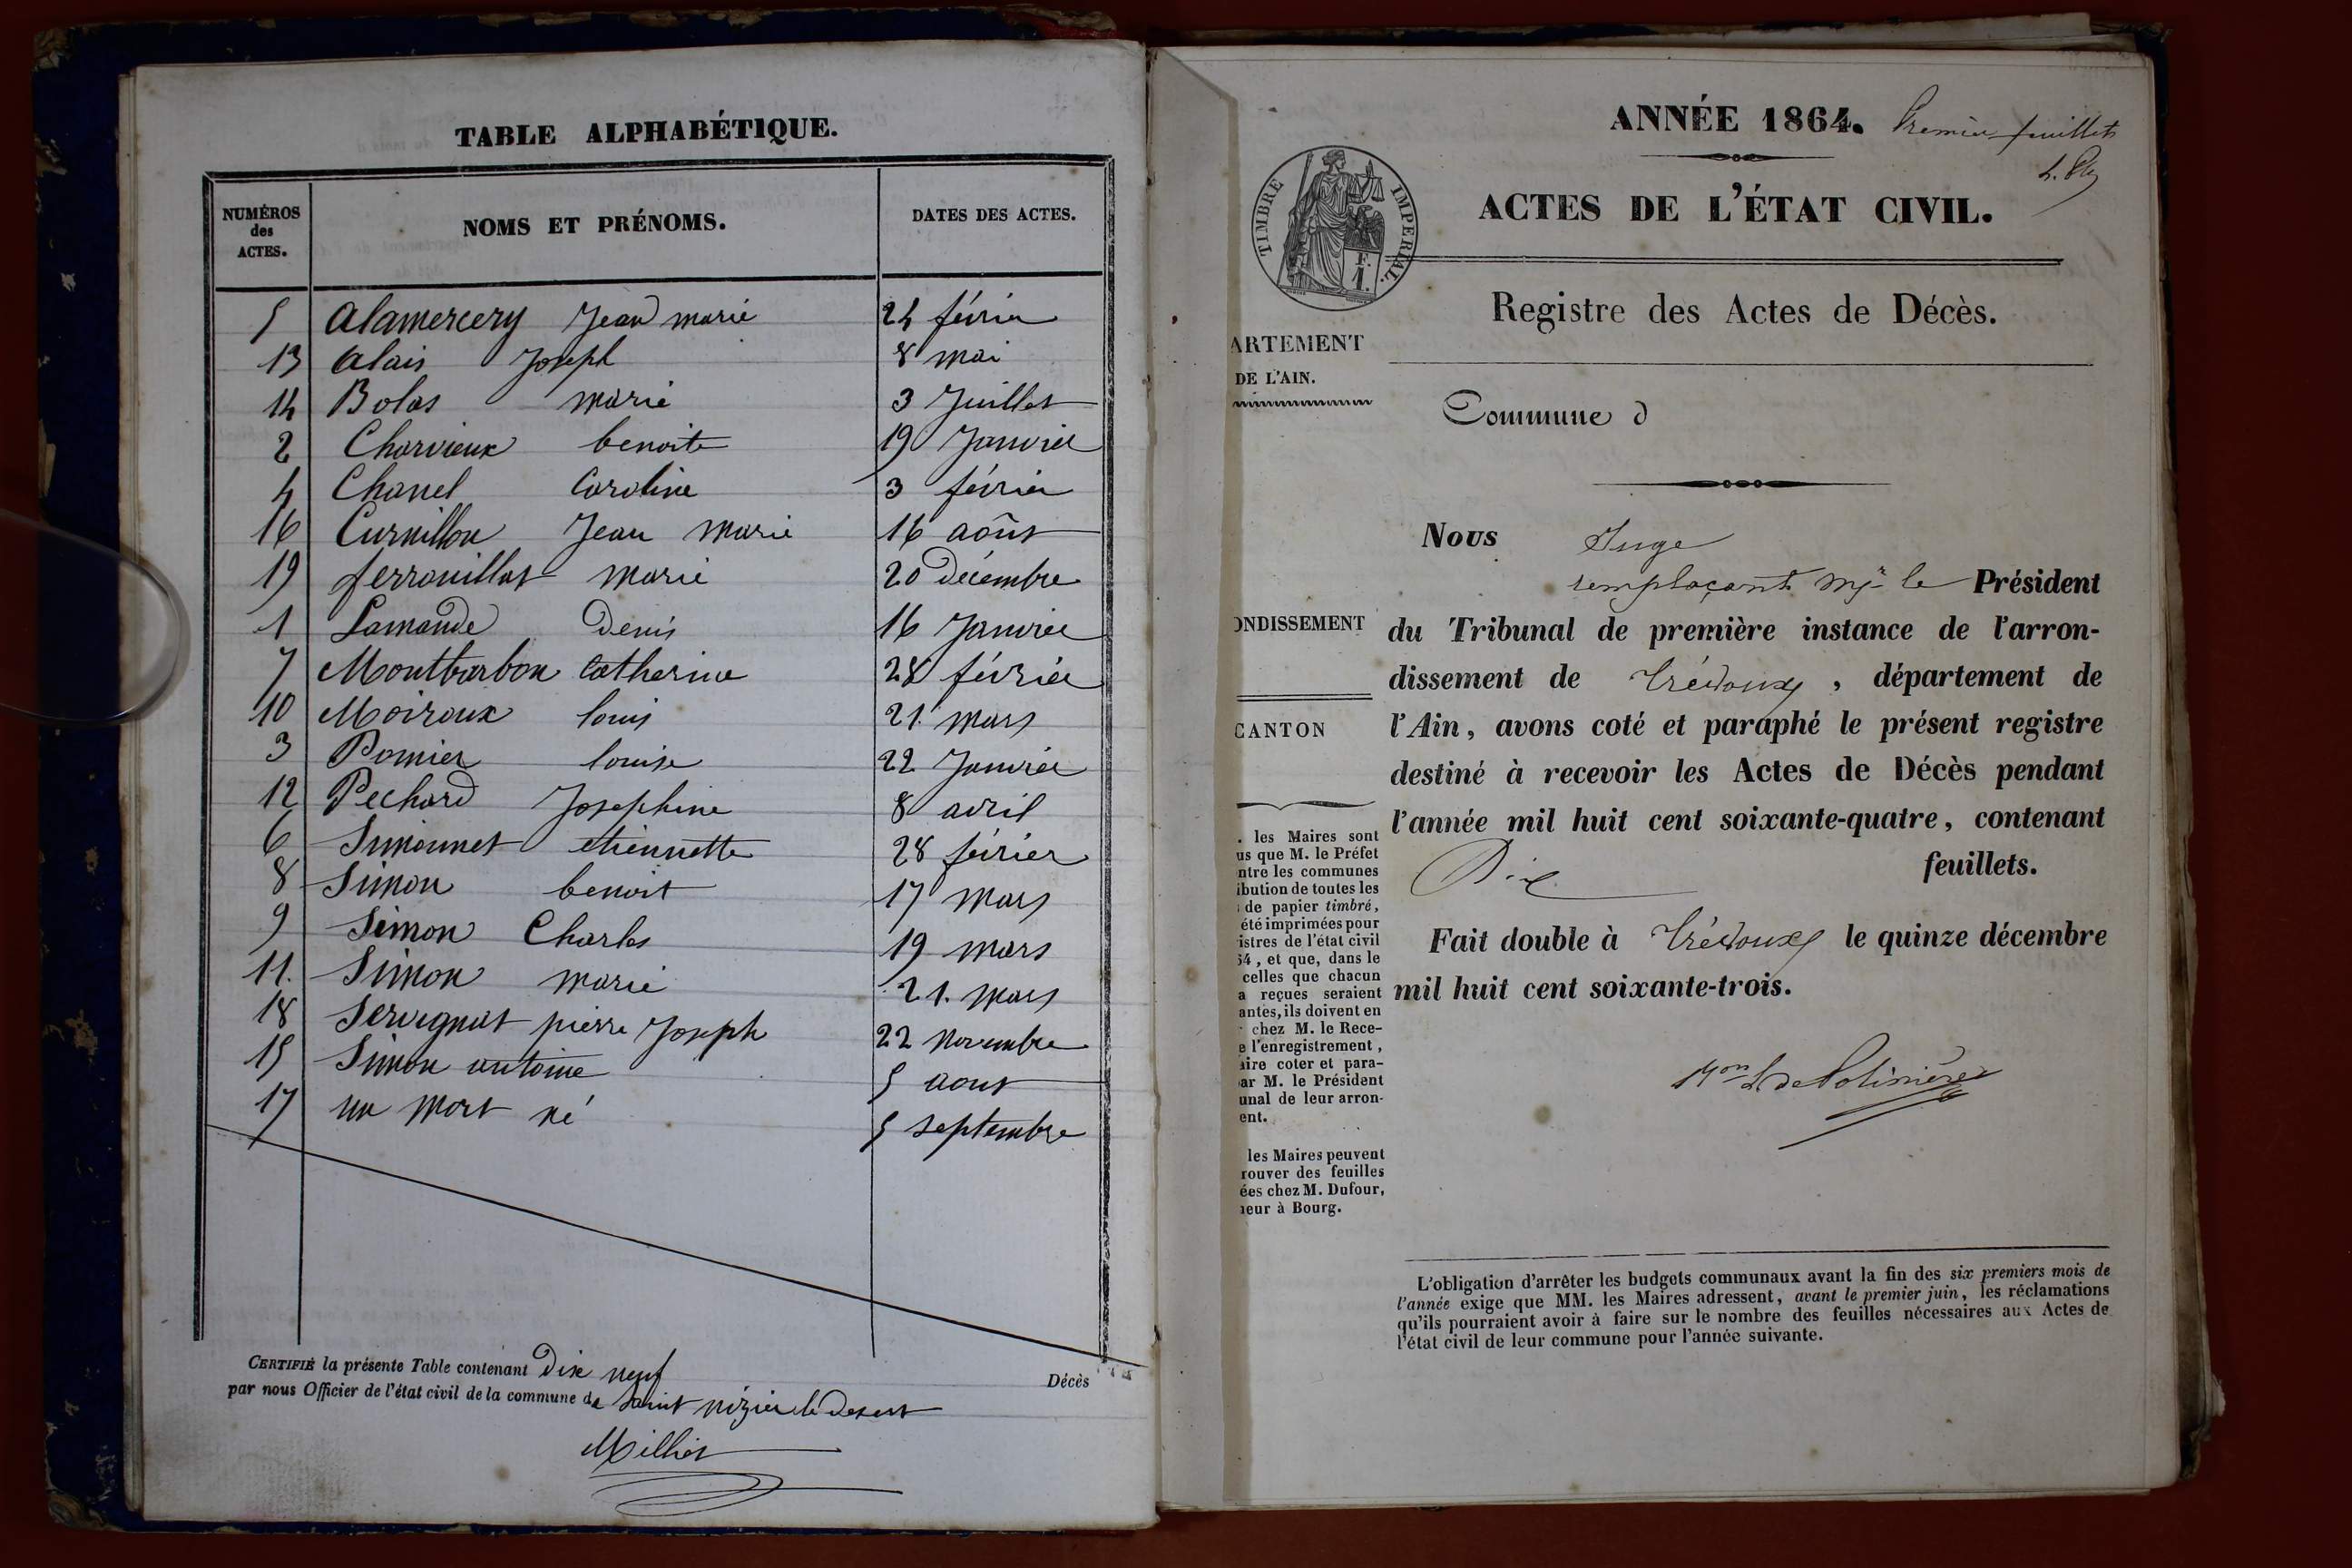 TABLE ALPHABÉTIQUE.
NUMÉROS des ACTES. NOMS ET PRÉNOMS. DATES DES ACTES.
5 Alamercery Jean marie 24 févrie
13 Alais Joseph 8 mai
14 Bolas marie 3 Juillet
2 Charvieux benoite 19 Janvier
4 Chanel Caroline 3 février
16 Curnillon Jean Marie 16 août
19 ferrouillat marie 20 Décembre
1 Lamande Denis 16 Janvier
7 Montbarbon Catherine 28 février
10 Moiroux louis 21. mars
3 Pomier louise 22 Janvier
12 Pechard Josephine 8 avril
6 Simonnet etiennette 28 février
8 Simon benoit 17 mars
9 Simon Charles 19 mars
11. Simon marie 21. mars
18 Servignat pierre Joseph 22 Novembre
15 Simon antoine 5 aout
17 un mort né 5 septembre
CERTIFIÉ la présente Table contenant Dix neuf Décès
par nous Officier de l'état civil de la commune de Saint nizier le Desert
Millet
ANNÉE 1864. Premier feuillet
TIMBRE IMPÉRIAL.
F. 1.
ACTES DE L'ÉTAT CIVIL.
Registre des Actes de Décès.
ARTEMENT
DE L'AIN.
Commune d
Nous Juge
remplaçant Mr le Président
ONDISSEMENT
du Tribunal de première instance de l'arron-
dissement de Trévoux, département de
CANTON
l'Ain, avons coté et paraphé le présent registre
destiné à recevoir les Actes de Décès pendant
l'année mil huit cent soixante-quatre, contenant
Dix feuillets.
Fait double à Trévoux le quinze décembre
mil huit cent soixante-trois.
. les Maires sont
us que M. le Préfet
ntre les communes
ibution de toutes les
de papier timbré,
été imprimées pour
istres de l'état civil
64, et que, dans le
celles que chacun
a reçues seraient
antes, ils doivent en
chez M. le Rece-
e l'enregistrement,
aire coter et para-
ar M. le Président
unal de leur arron-
ent.
les Maires peuvent
rouver des feuilles
ées chez M. Dufour,
eur à Bourg.
L'obligation d'arrêter les budgets communaux avant la fin des six premiers mois de
l'année exige que MM. les Maires adressent, avant le premier juin, les réclamations
qu'ils pourraient avoir à faire sur le nombre des feuilles nécessaires aux Actes de
l'état civil de leur commune pour l'année suivante.